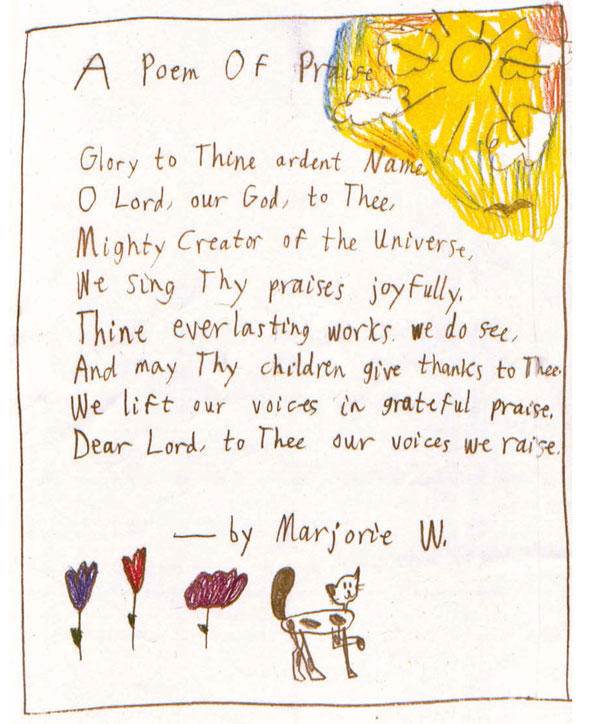 A Poem Of Praise
Glory to Thine ardent Name,
O Lord, our God, to Thee,
Mighty Creator of the Universe,
We sing Thy praises joyfully.
Thine everlasting works we do see,
And may Thy children give thanks to Thee.
We lift our voices in grateful praise,
Dear Lord, to Thee our voices we raise.
— by Marjorie W.